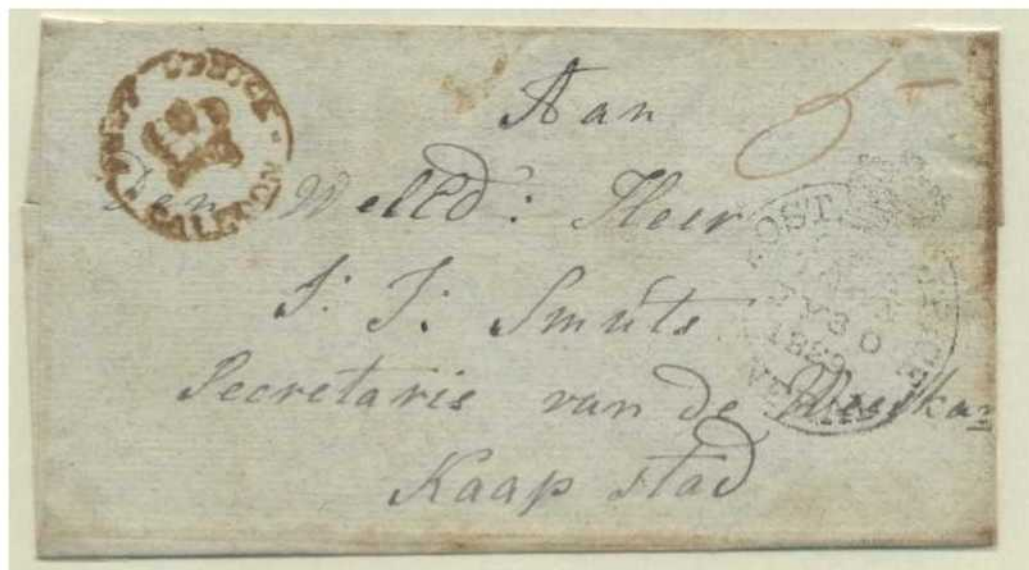 POST OFFICE
CALEDON
5
Aan
Den WelEd: Heer
J: J: Smuts
Secretaris van de Weeskam
Kaap stad
POST OFFICE
1820